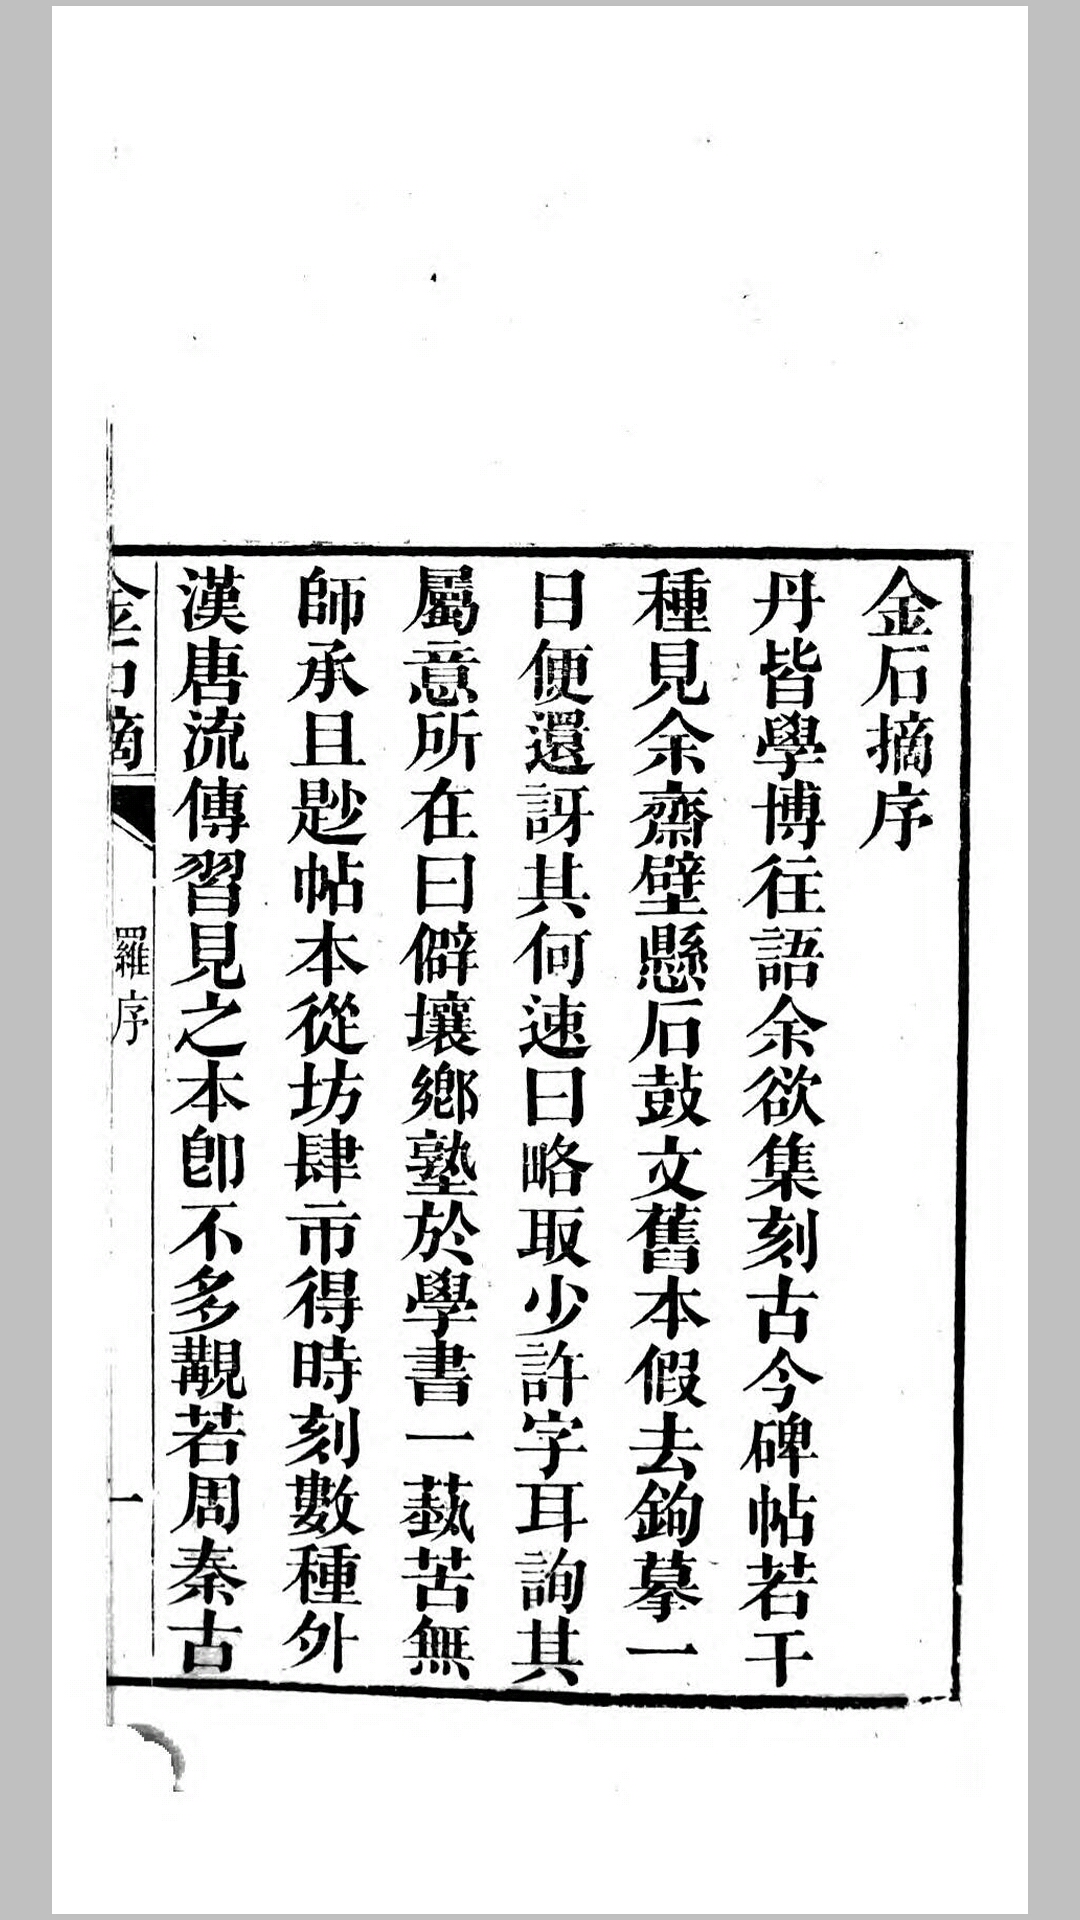 金石摘序
丹皆學博往語余欲集刻古今碑帖若干
種見余齋壁懸石鼓文舊本假去鉤摹一
日便還訝其何速曰略取少許字耳詢其
屬意所在曰僻壤鄉塾於學書一蓺苦無
師承且尟帖本從坊肆市得時刻數種外
漢唐流傳習見之本卽不多覩若周秦古
金石摘
羅序
一